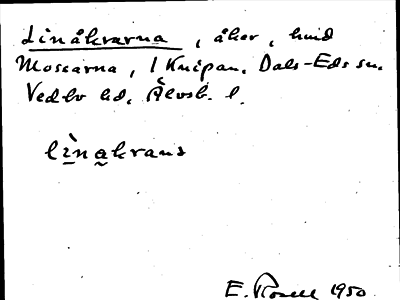 Linåkrarna, åker, hmd
Mossarna, 1 Knipan, Dals-Eds sn.
Vedbo hd, Älvsb. l.
lìnakrana
E. Rosell 1950